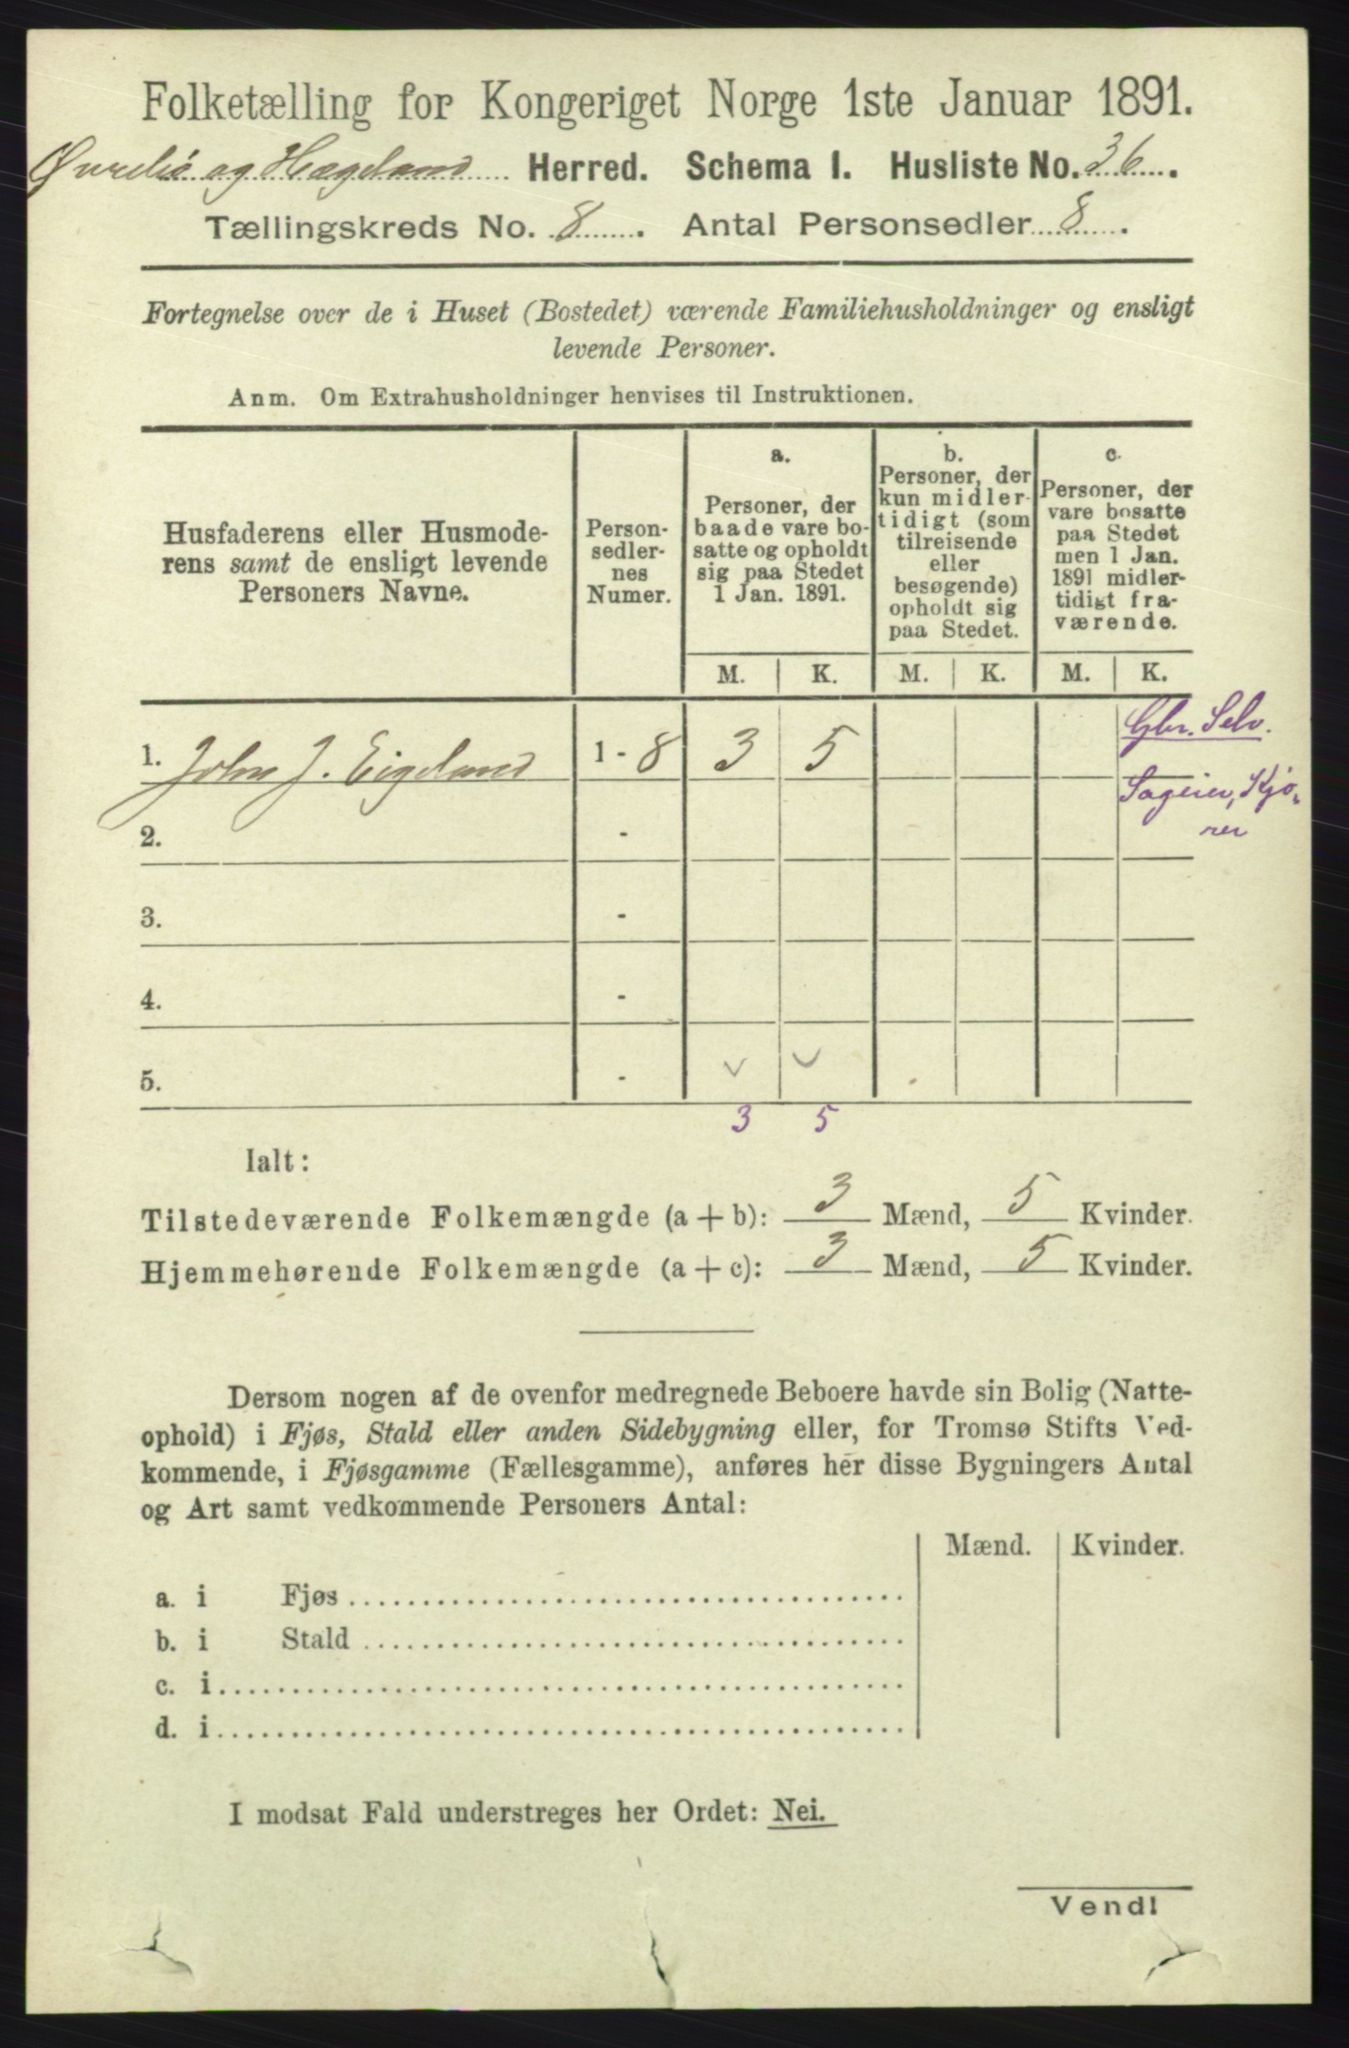 Folketælling for Kongeriget Norge 1ste Januar 1891.
Øvrebø og Hægeland Herred. Schema I. Husliste No. 36.
Tællingskreds No. 8. Antal Personsedler 8.
Fortegnelse over de i Huset (Bostedet) værende Familiehusholdninger og ensligt
levende Personer.
Anm. Om Extrahusholdninger henvises til Instruktionen.
Husfaderens eller Husmode-
rens samt de ensligt levende
Personers Navne.
Person-
sedler-
nes
Numer.
a.
Personer, der
baade vare bo-
satte og opholdt
sig paa Stedet
1 Jan. 1891.
b.
Personer, der
kun midler-
tidigt (som
tilreisende
eller
besøgende)
opholdt sig
paa Stedet.
c.
Personer, der
vare bosatte
paa Stedet
men 1 Jan.
1891 midler-
tidigt fra-
værende.
M. K. M. K. M. K.
1. John J. Eigeland 1 - 8 3 5 Gbr. Selv.
Sageier, Kjø-
rer
2. -
3. -
4. -
5. -
3 5
Ialt:
Tilstedeværende Folkemængde (a + b): 3 Mænd, 5 Kvinder.
Hjemmehørende Folkemængde (a + c): 3 Mænd, 5 Kvinder.
Dersom nogen af de ovenfor medregnede Beboere havde sin Bolig (Natte-
ophold) i Fjøs, Stald eller anden Sidebygning eller, for Tromsø Stifts Ved-
kommende, i Fjøsgamme (Fællesgamme), anføres her disse Bygningers Antal
og Art samt vedkommende Personers Antal:
Mænd. Kvinder.
a. i Fjøs
b. i Stald
c. i
d. i
I modsat Fald understreges her Ordet: Nei.
Vend!